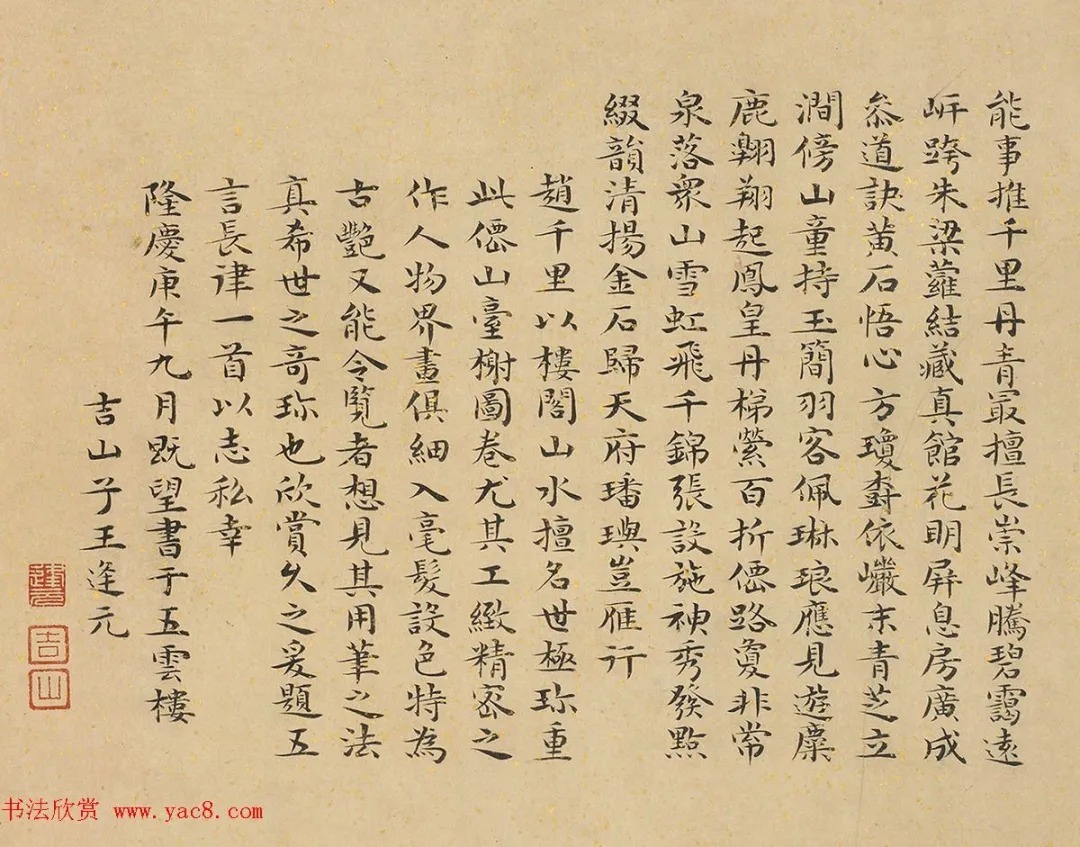 能事推千里丹青冣擅長崇峰騰碧靄遠
岍跨朱梁蘿結藏真館花明屏息房廣成
叅道訣黃石悟心方瓊樹依巘末青芝立
澗傍山童持玉簡羽客佩琳琅應見遊麋
鹿翱翔起鳳皇丹梯縈百折僊路敻非常
泉落衆山雪虹飛千錦張設施神秀發點
綴韻清揚金石歸天府璠璵豈雁行
趙千里以樓閣山水擅名世極珎重
此僊山臺榭圖卷尤其工緻精宻之
作人物界畫俱細入毫髮設色特為
古艷又能令覧者想見其用筆之法
真希世之竒珎也欣賞久之爰題五
言長律一首以志私幸
隆慶庚午九月既望書于五雲樓
吉山子王逢元
吉山
书法欣赏 www.yac8.com